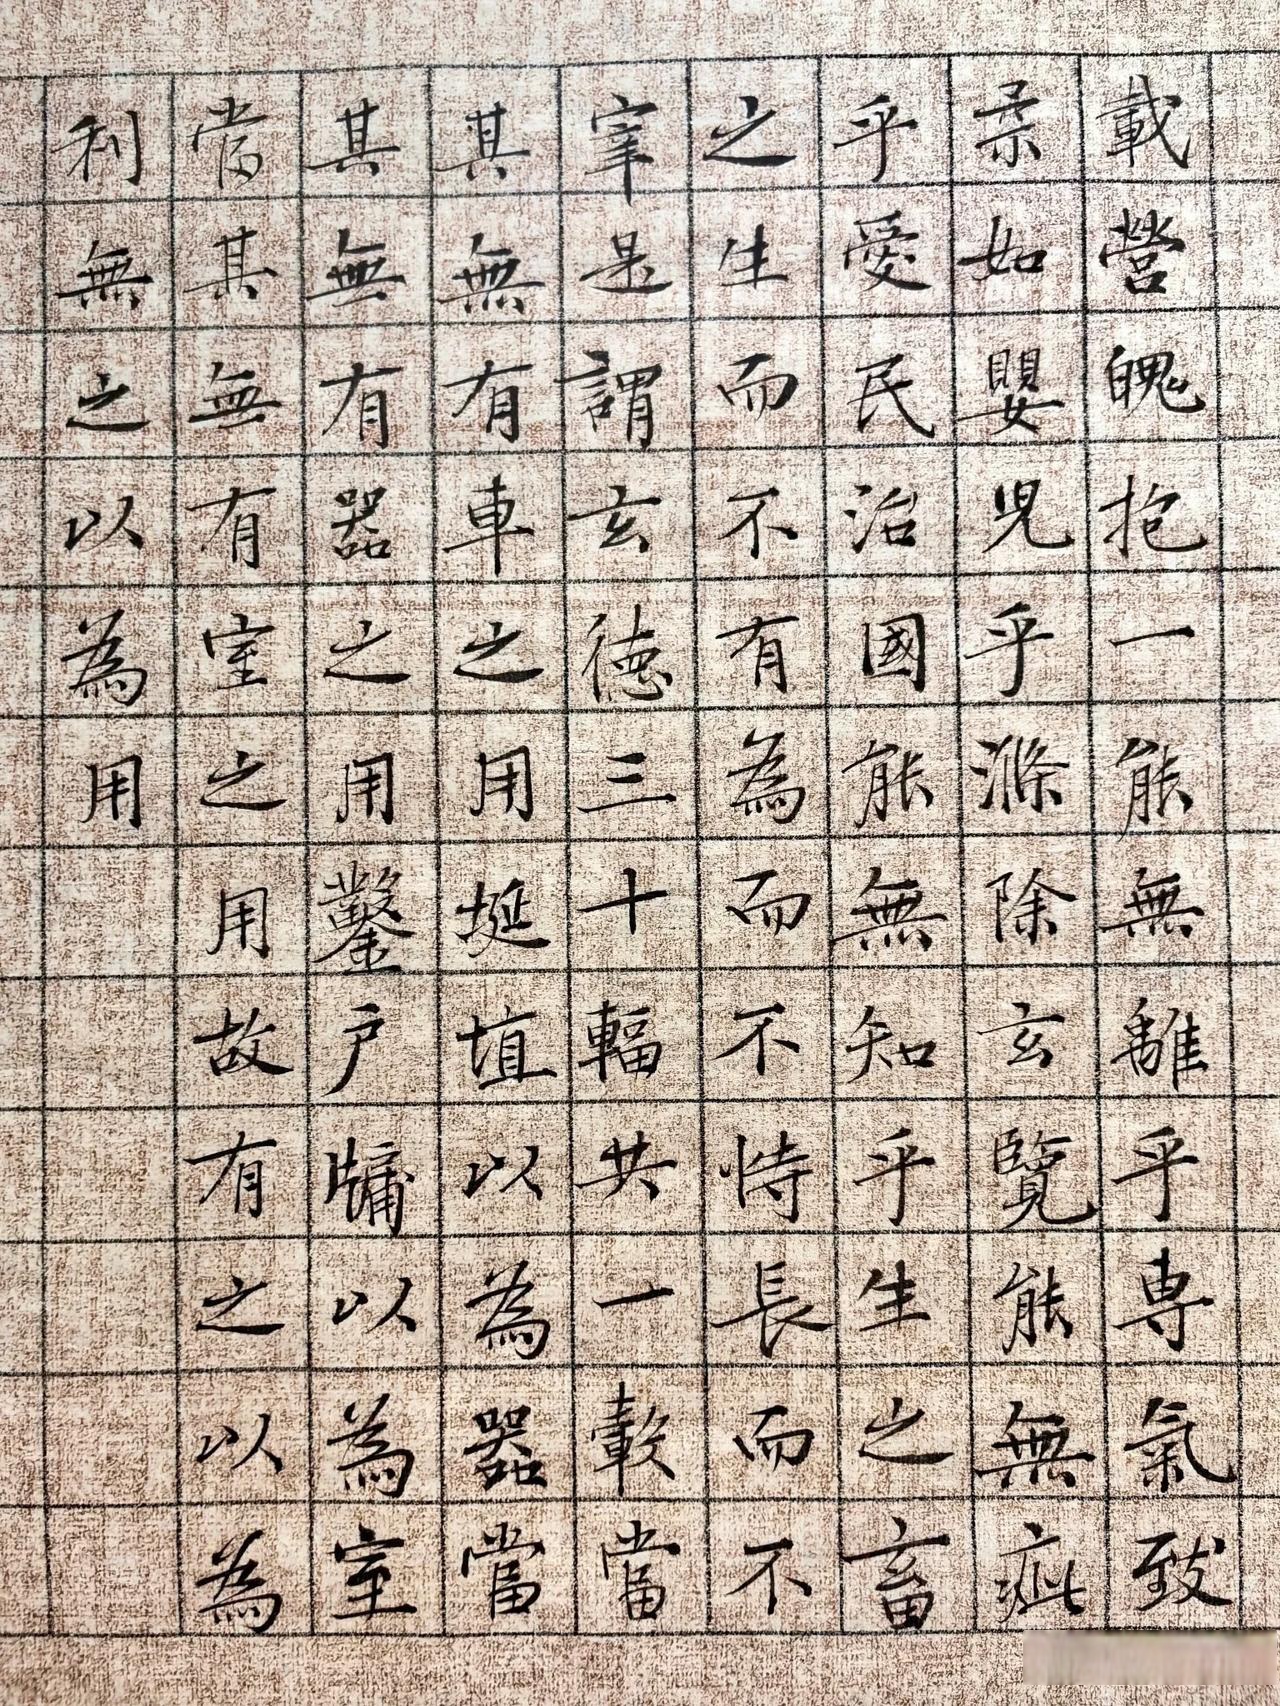 載營魄抱一能無離乎専氣致
柔如嬰児乎滌除玄覽能無疵
乎愛民治國能無知乎生之畜
之生而不有為而不恃長而不
宰是謂玄德三十輻共一轂當
其無有車之用埏埴以為器當
其無有器之用鑿戶牖以為室
當其無有室之用故有之以為
利無之以為用